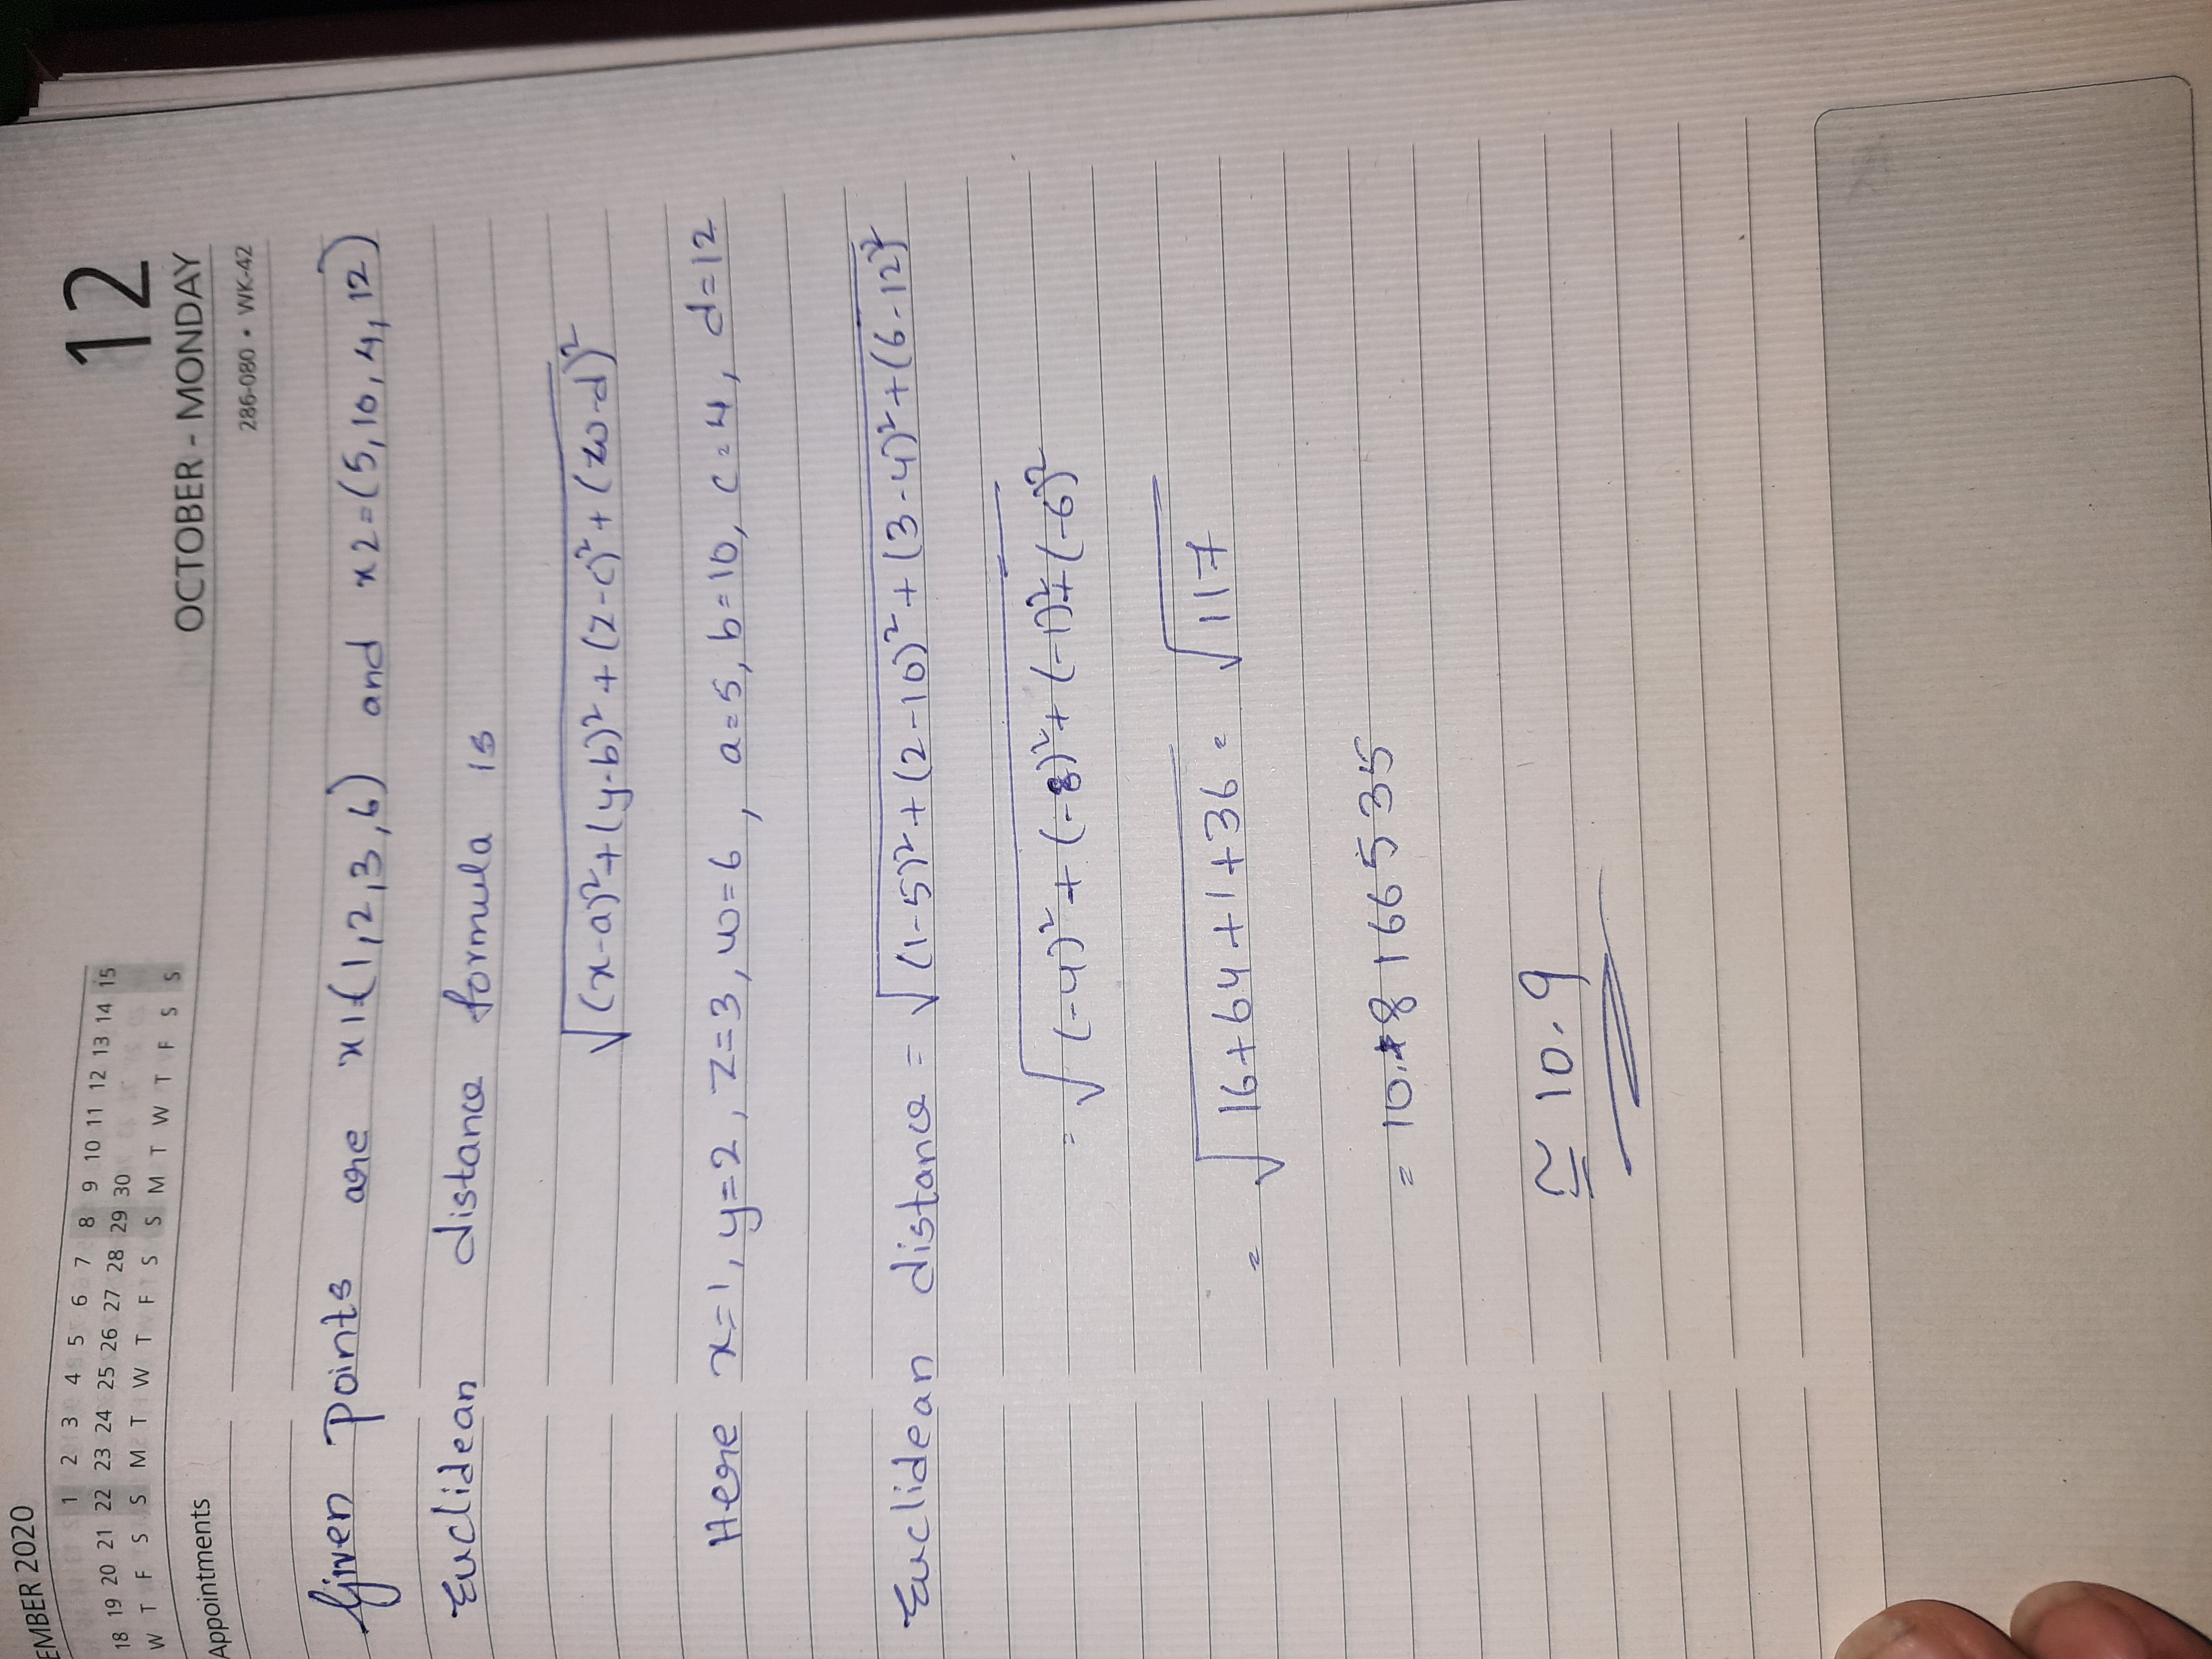 EMBER 2020
1 2 3 4 5 6 7 8 9 10 11 12 13 14 15
18 19 20 21 22 23 24 25 26 27 28 29 30
W T F S S M T W T F S S M T W T F S S
Appointments
12
OCTOBER - MONDAY
286-080 • WK-42
Given points are x1=(1,2,3,6) and x2=(5,10,4,12)
Euclidean distance formula is
√(x-a)²+(y-b)²+(z-c)²+(w-d)²
Here x=1, y=2, z=3, w=6, a=5, b=10, c=4, d=12
Euclidean distance = √(1-5)²+(2-10)²+(3-4)²+(6-12)²
= √(-4)²+(-8)²+(-1)²+(-6)²
= √16+64+1+36 = √117
= 10.8166535
≅ 10.9